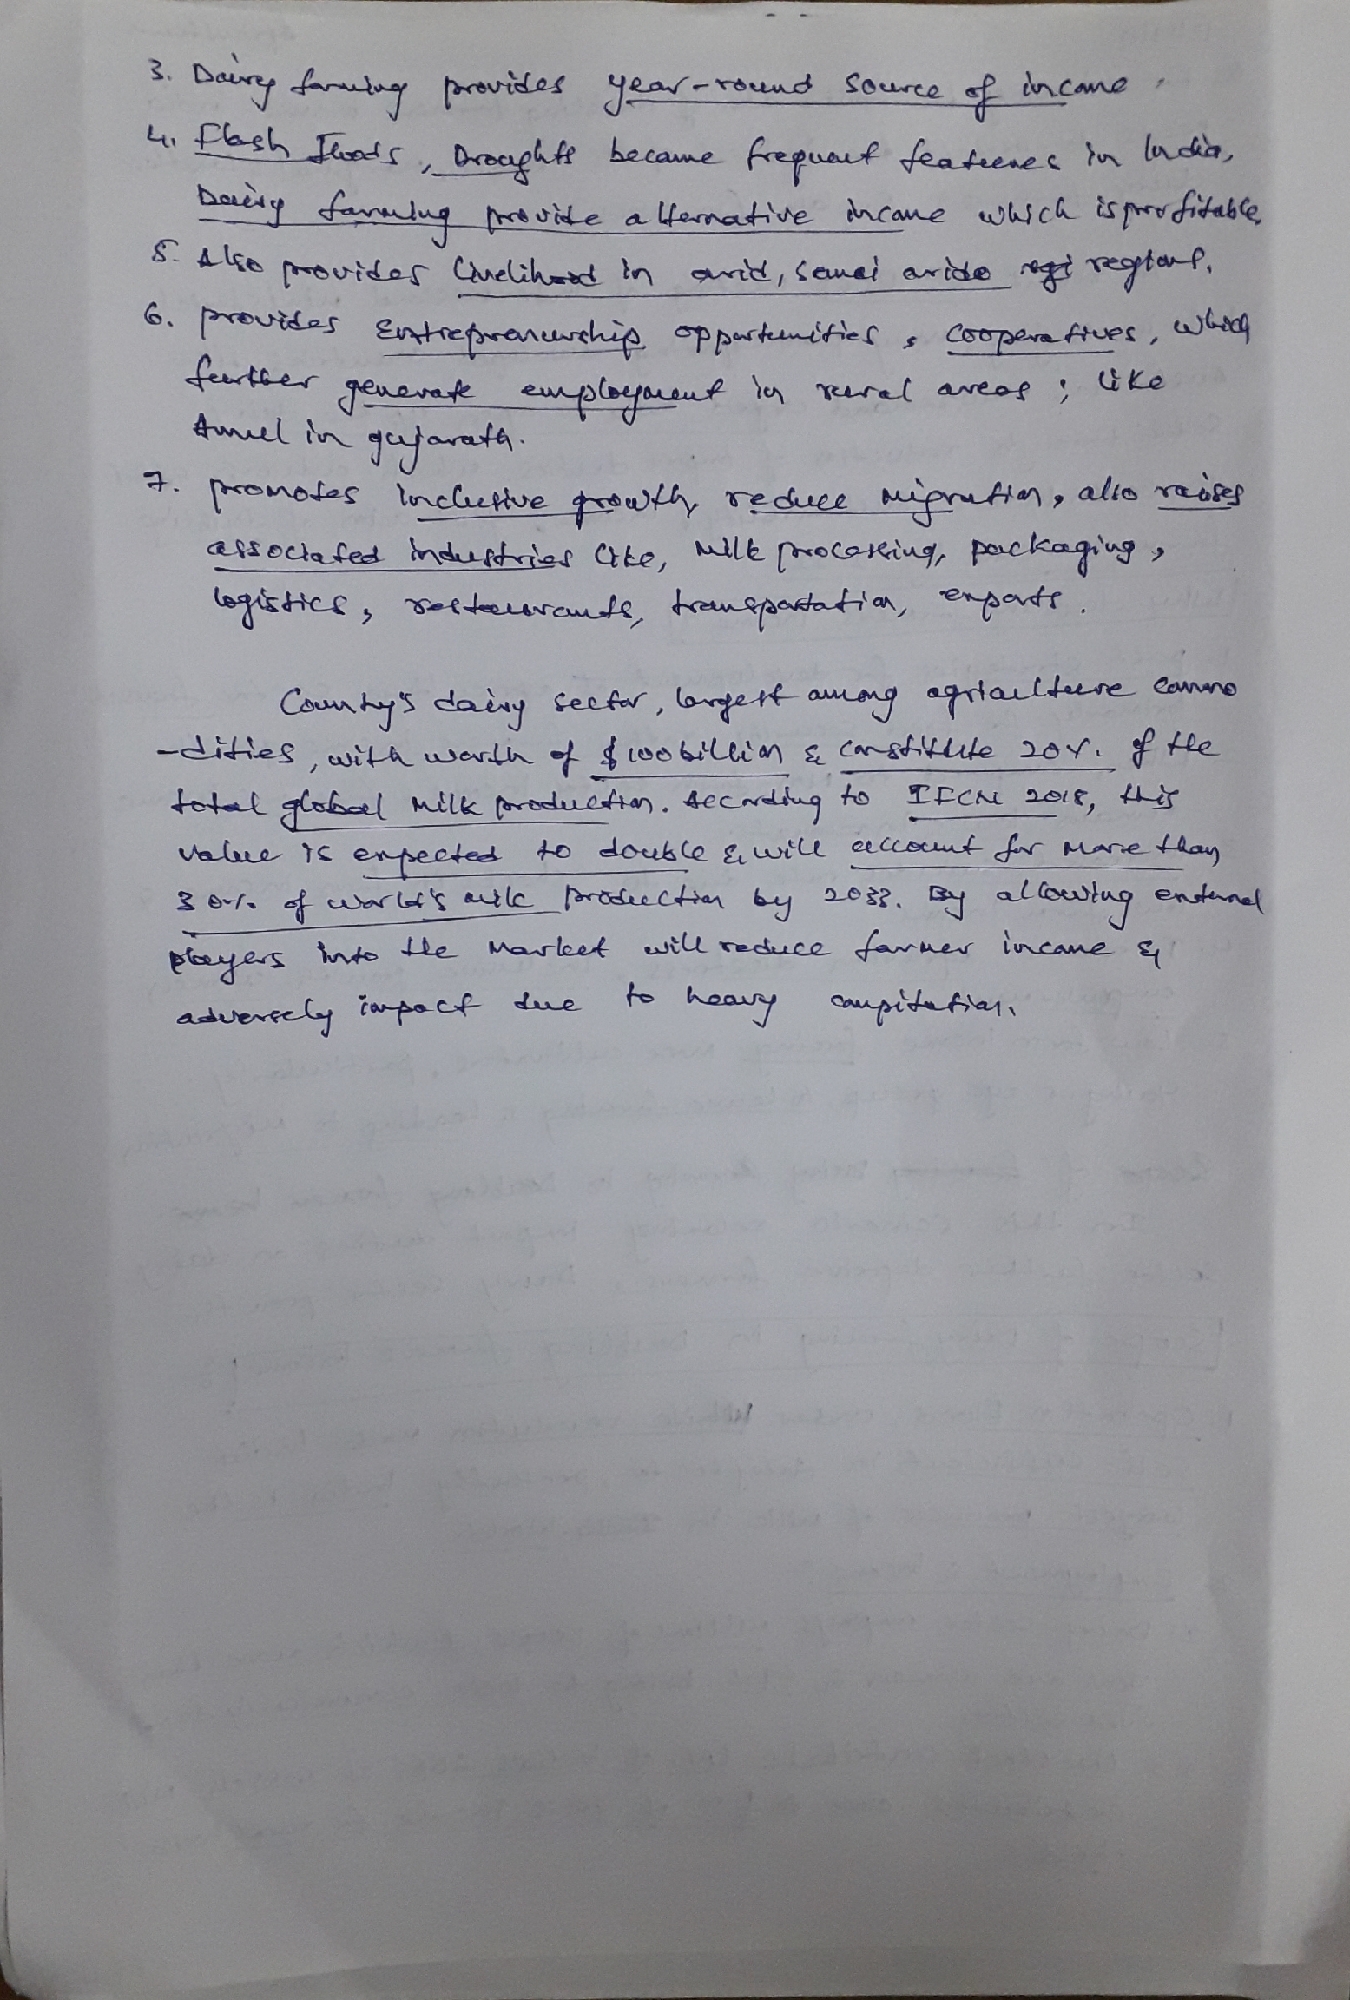 3. Dairy farming provides year-round source of income.
4. Flash floods, Droughts became frequent features in India,
Dairy farming provide alternative income which is profitable
5. Also provides livelihood in arid, semi arid regions.
6. provides Entrepreneurship opportunities, cooperatives, which
further generate employment in rural areas; like
Amul in gujarath.
7. promotes inclusive growth, reduce migration, also raises
associated industries like, milk processing, packaging,
logistics, restaurants, transportation, exports.
County's dairy sector, largest among agriculture commo
-dities, with worth of $100 billion & constitute 20%. of the
total global milk production. According to IFCN 2018, this
value is expected to double & will account for more than
30% of world's milk production by 2033. By allowing external
players into the market will reduce farmer income &
adversely impact due to heavy compitation.